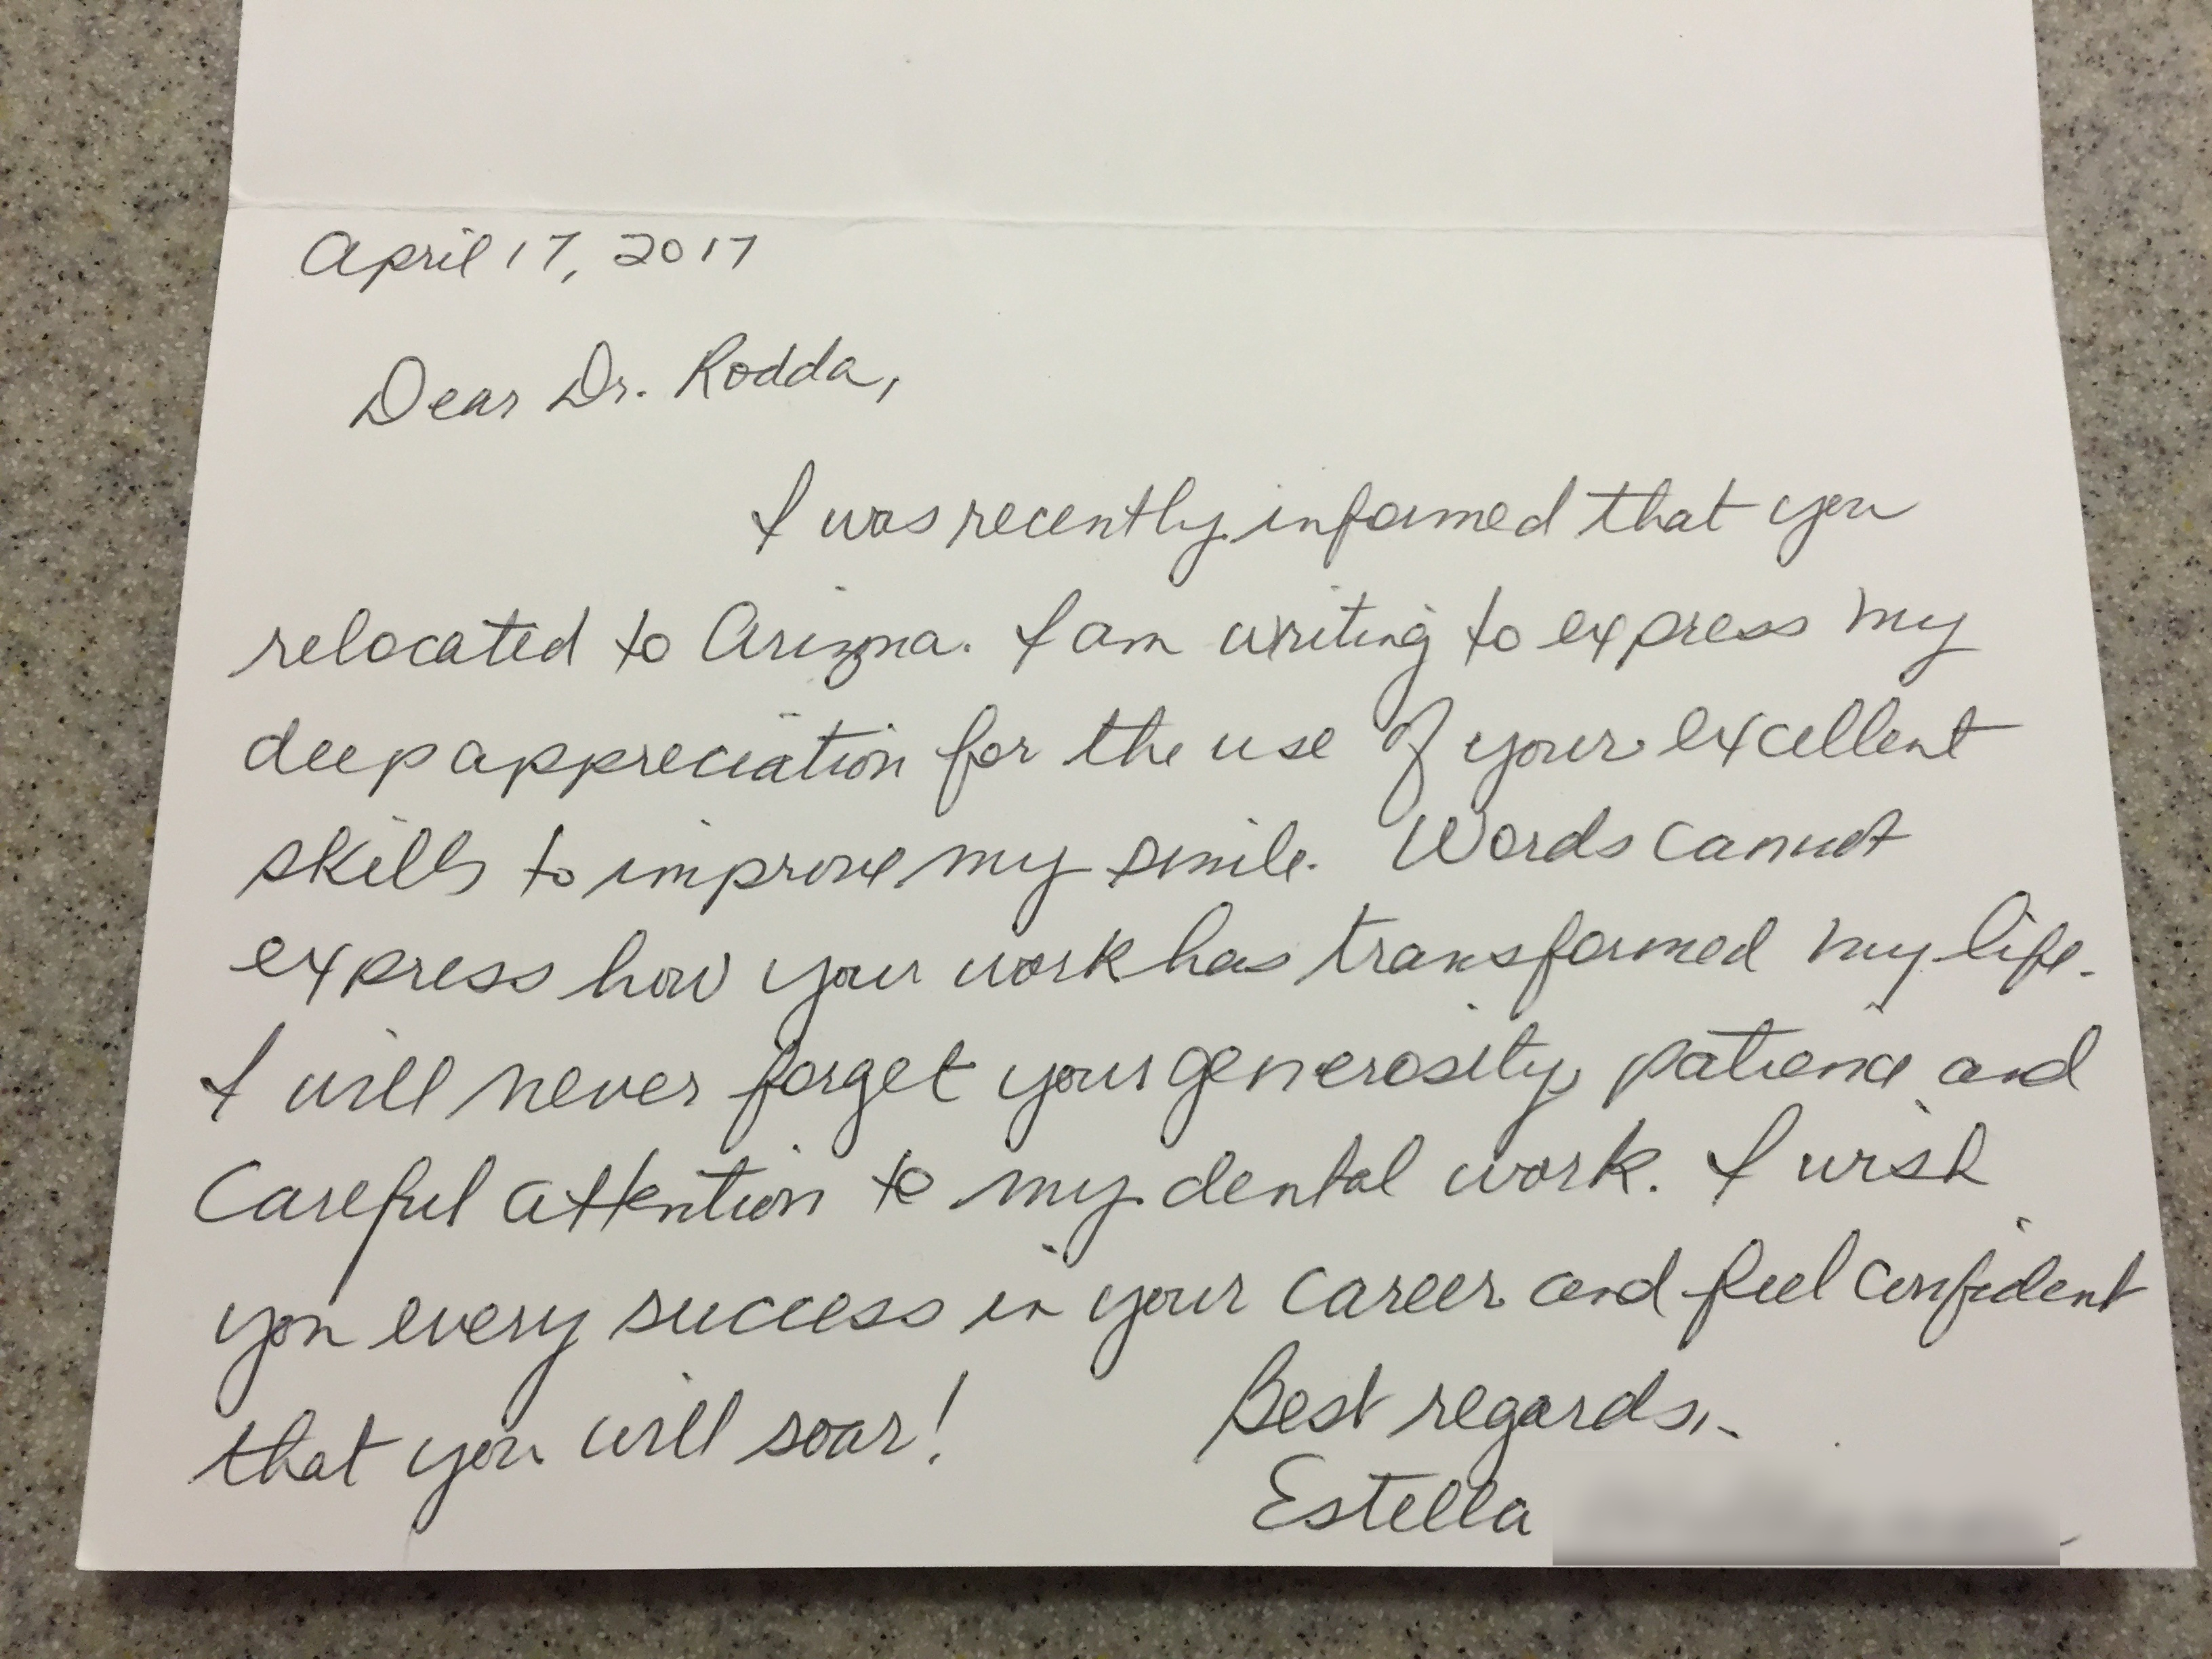 April 17, 2017
Dear Dr. Rodda,
I was recently informed that you
relocated to Arizona. I am writing to express my
deep appreciation for the use of your excellent
skills to improve my smile. Words cannot
express how your work has transformed my life.
I will never forget your generosity, patience and
Careful attention to my dental work. I wish
you every success in your career and feel confident
that you will soar!
Best regards,
Estella